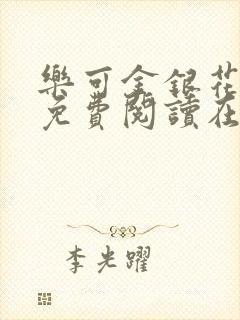 樂可金銀花
免費閱讀在
李光躍